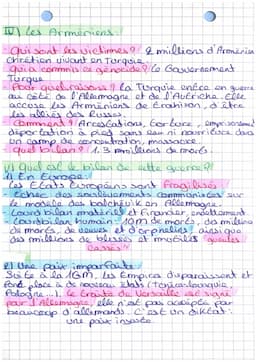 IV) Les Arméniens :
- Qui sont les victimes ? 2 millions d'Arméniens
chrétien vivant en Turquie.
- Qui a commis ce génocide ? Le Gouvernement
Turque
- Pour quel raisons ? La Turquie entre en guerre
au côté de l'Allemagne et de l'Autriche. Elle
accuse les Arméniens de trahison, d'être
les alliés des Russes.
- Comment ? Arrestations, torture, emprisonnement
déportation à pied sans eau ni nourriture dans
un camp de concentration, massacre.
- Quel bilan ? 1.3 millions de morts.
V) Quel est le bilan de cette guerre ?
1) En Europe :
- Les États Européens sont fragilisés
- Echec des soulèvements communistes sur
le modèle des bolchévik en Allemagne.
- Lourd bilan matériel et financier, endettement
- Lourd bilan humain : 10M de morts, des millions
de morts, de veuves et d'orphelins ainsi que
des millions de blessés et mutilés "gueules
cassés"
2) Une paix imparfaite :
Suite à la 1GM, les Empires disparaissent et
font place à de nouveau états (Tchécoslovaquie,
Pologne...). Le traité de Versaille est signé
par l'Allemagne, elle n'est pas acceptée par
beaucoup d'allemands. C'est un diktat :
une paix injuste